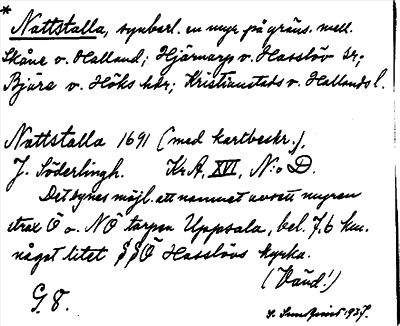 * Nattstalla, synbarl. en myr på gräns. mell.
Skåne o. Halland; Hjärnarp o. Hasslöv sr;
Bjäre o. Höks hdr; Kristianstads o. Hallands l.
Nattstalla 1691 (med kartbeskr.),
J. Söderlingh. KrA, XVI, N:o D.
Det synes möjl. att namnet avsett myren
strax Ö o. NÖ torpen Uppsala, bel. 7,6 km.
något litet SSÖ Hasslövs kyrka.
(Vänd!)
G. 8.
1927.